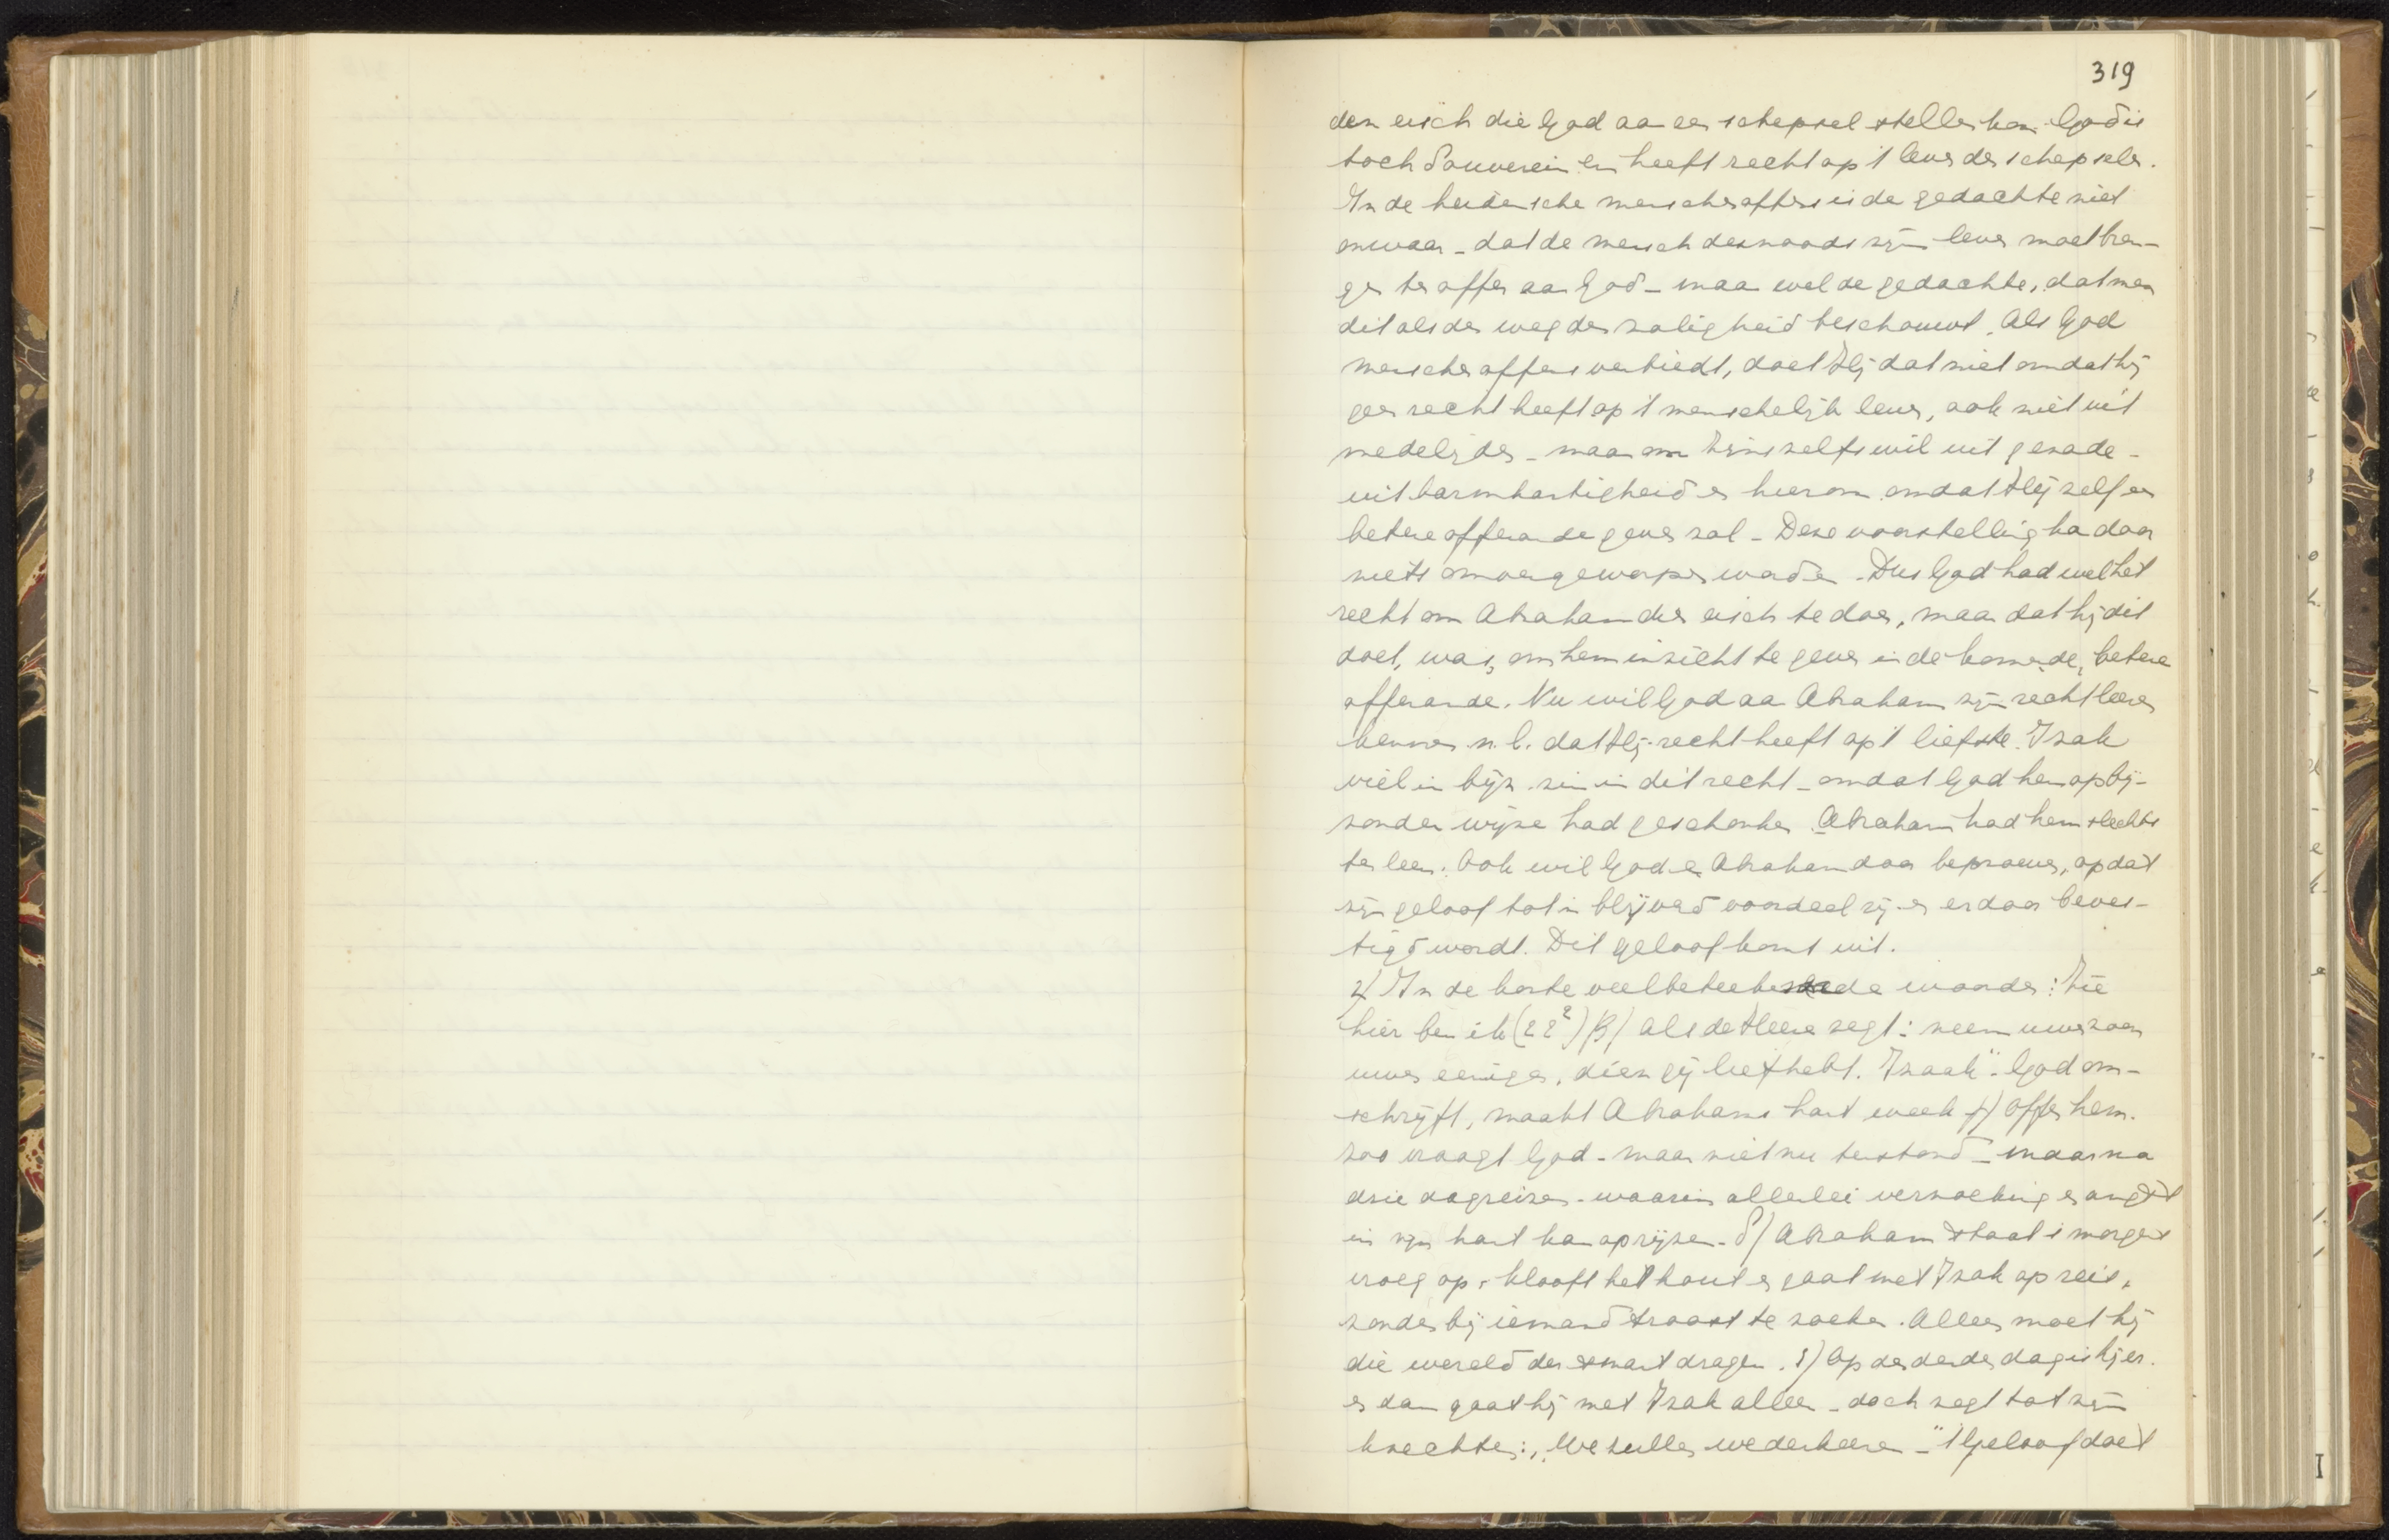 319
den eisch die God aan een schepsel stellen kan. God is
toch Souverein en heeft recht op 't leven der schepselen.
In de heidensche menschenoffers is de gedachte niet
onwaar - dat de mensch desnoods zijn leven moet bren-
gen ten offer aan God - maar wel de gedachte, dat men
dit als den weg der zaligheid beschouwt. Als God
menschenoffers verbiedt, doet Hij dat niet omdat hij
geen recht heeft op 't menschelijk leven, ook niet uit
medelijden - maar om Zijns zelfs wil uit genade -
uit barmhartigheid en hierom omdat Hij zelf een
betere offerande geven zal - Deze voorstelling kan door
niets omvergeworpen worden. Dus God had wel het
recht om Abraham dien eisch te doen, maar dat hij dit
doet, was, om hem inzicht te geven in de komende, betere
offerande. Nu wil God aan Abraham zijn recht leeren
kennen n.l. dat Hij recht heeft op 't liefste. Izak
viel in bijz. zin in dit recht - omdat God hem op bij-
zondere wijze had geschonken. Abraham had hem slechts
ter leen. Ook wil God en Abraham door beproeven, opdat
zijn geloof tot in blijvend voordeel zij en erdoor beves-
tigd wordt. Dit geloof komt uit.
α) In de korte veelbeteekenende woorden: Zie
hier ben ik (22²) β) als de Heere zegt: neem uwen zoon
uwen eenigen, dien gij liefhebt. Izaak". God om-
schrijft, maakt Abrahams hart week γ) offer hem.
zoo vraagt God - maar niet nu terstond - maar na
drie dagreizen - waarin allerlei verzoeking en angst
in zijn hart kan oprijzen. δ) Abraham staat 's morgens
vroeg op, klooft het hout en gaat met Izak op reis,
zonder bij iemand troost te zoeken. Alleen moet hij
die wereld der smart dragen. ε) Op den derden dag is hij er.
en dan gaat hij met Izak alleen - doch zegt tot zijn
knechten: „We zullen wederkeeren -" 't Geloof doet